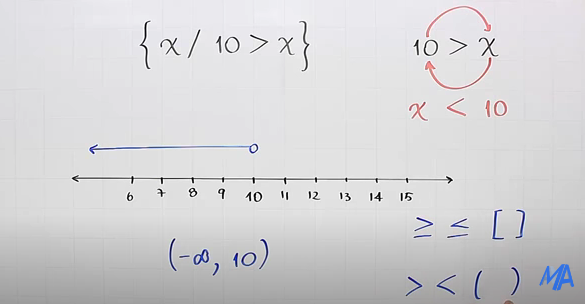 {x / 10 > x}
10 > x
x < 10
6 7 8 9 10 11 12 13 14 15
(-∞, 10)
≥ ≤ [ ]
> < ( )
MA